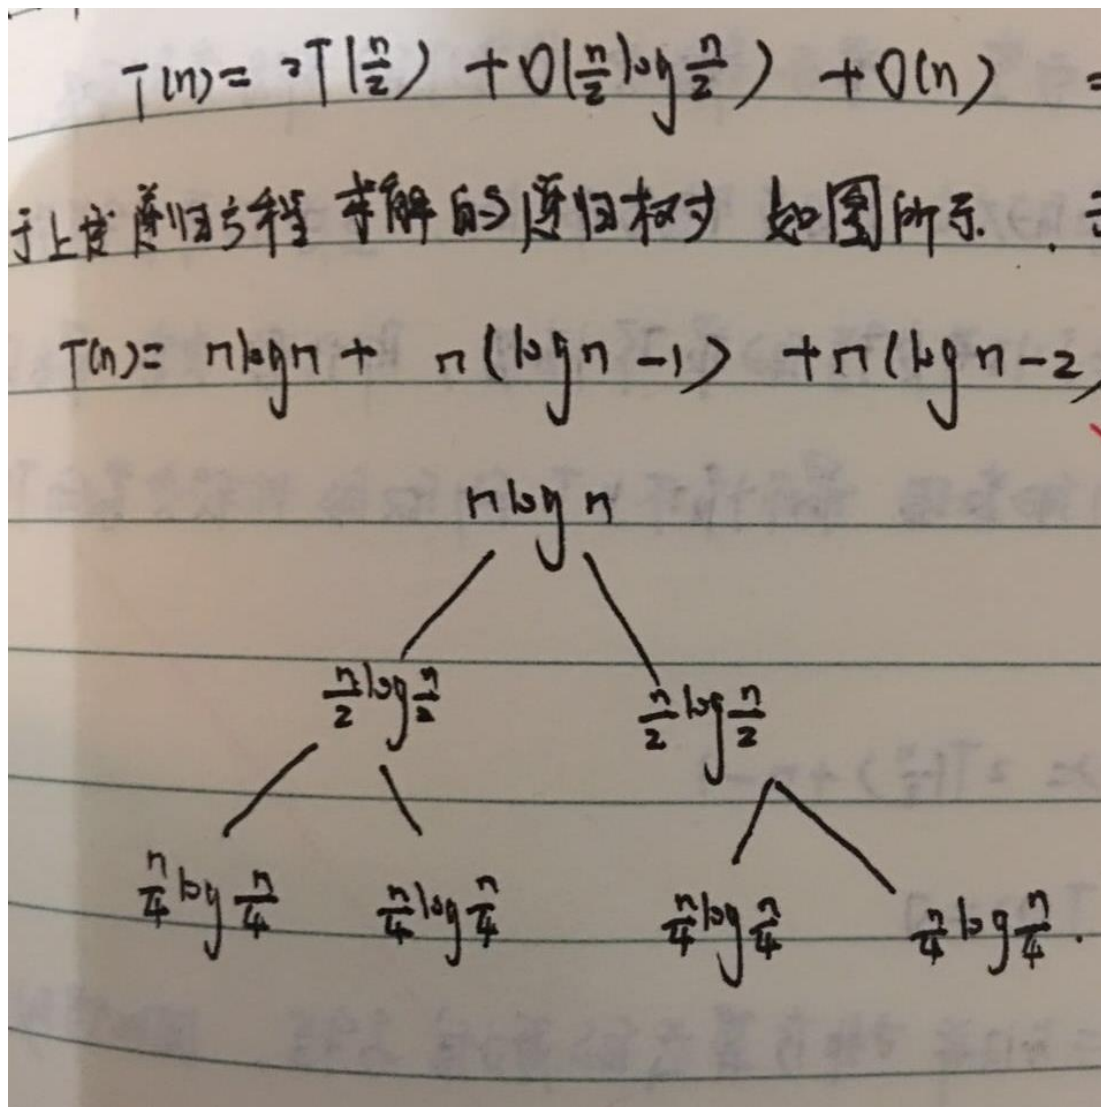 T(n) = 2T(n/2) + O(n/2 log n/2) + O(n) =
于上述递归方程 求解的递归树 如图所示.
T(n) = n log n + n(log n - 1) + n(log n - 2)
n log n
n/2 log n/2 n/2 log n/2
n/4 log n/4 n/4 log n/4 n/4 log n/4 n/4 log n/4.